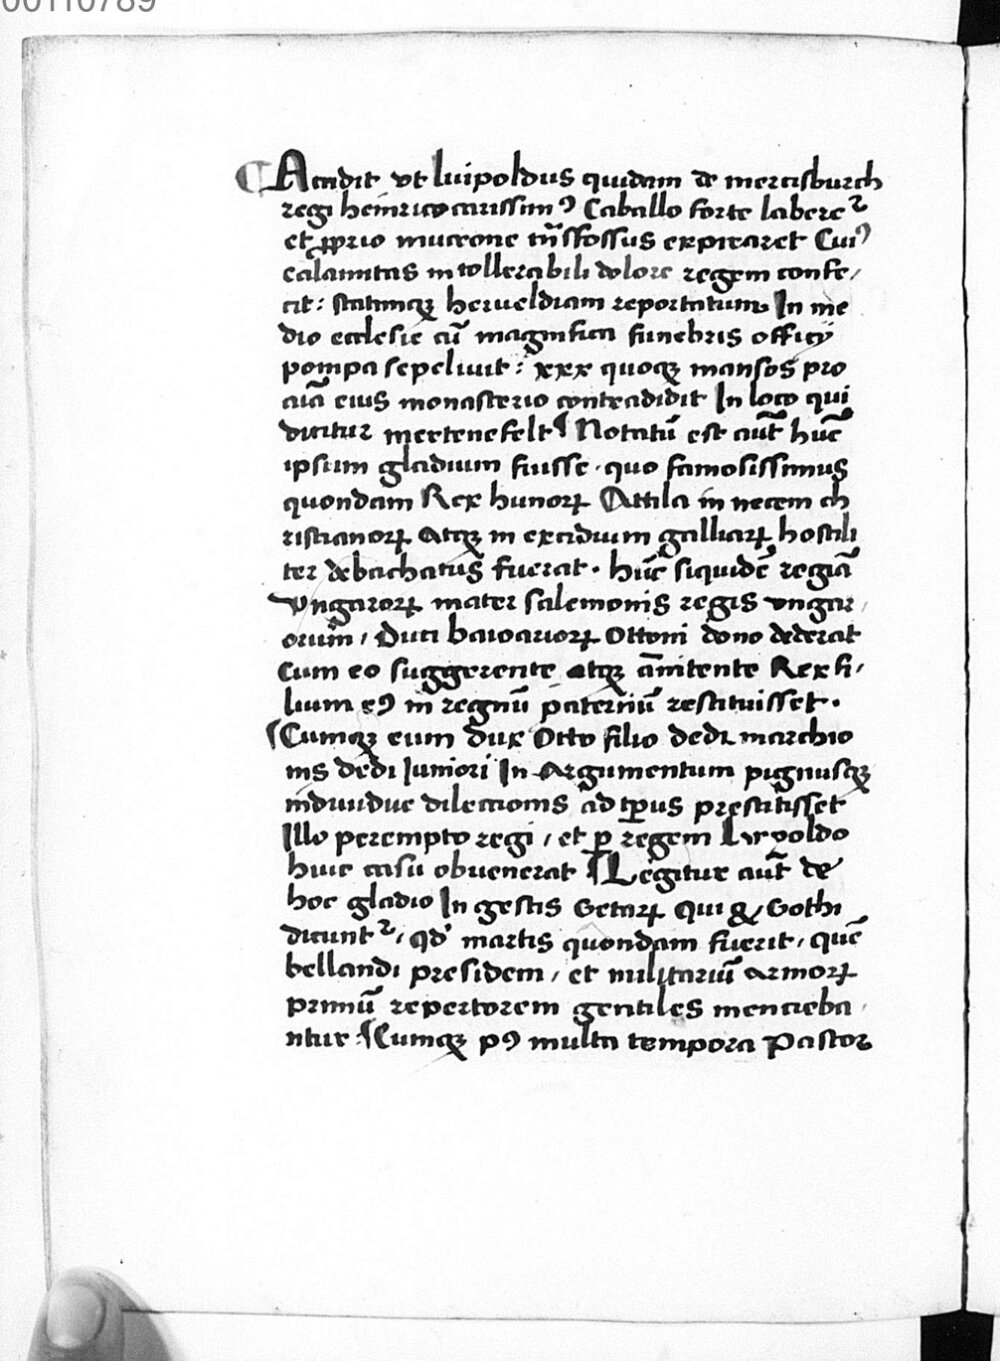 00110789
¶ Accidit vt luipoldus quidam de mercisburch
regi heinrico carissimꝰ Caballo forte laberetᷣ
et ꝓprio mucrone tn̄sfossus expiraret Cuiꝰ
calamitas intollerabili dolore regem confe/
cit: statimqꝫ herueldiam reportatum In me
dio ecclesie cū magnifica funebris officij
pompa sepeliuit: xxx quoqꝫ mansos pro
aīa eius monasterio contradidit In loco qui
dicitur mertenefelt ¶ Notatū est aūt hūc
ipsum gladium fuisse . quo famosissimus
quondam Rex hunoꝝ Attila in necem ch
ristianoꝝ Atqꝫ in excidium galliaꝝ hostili
ter debachatus fuerat . hūc siquidē regiā
vngaroꝝ mater salemonis regis vngar/
orum / Duci baioarioꝝ Ottoni dono dederat
Cum eo suggerente atqꝫ ānitente Rex fi/
lium eꝰ in regnū paternū restituisset .
¶ Cumqꝫ eum dux Otto filio dedi marchio
nis dedi Iuniori In Argumentum pignusqꝫ
indiuidue dilectionis ad tp̄us prestitisset
Illo perempto regi / et ꝑ regem Lvpoldo
huic casu obuenerat ¶ Legitur aūt de
hoc gladio In gestis Getaꝝ Qui & Gothi
dicuntᷣ / qd' martis quondam fuerit / quē
bellandi presidem / et militariū armoꝝ
primū repertorem gentiles mencieba/
ntur : ¶ Cumqꝫ pꝰ multa tempora Pastor